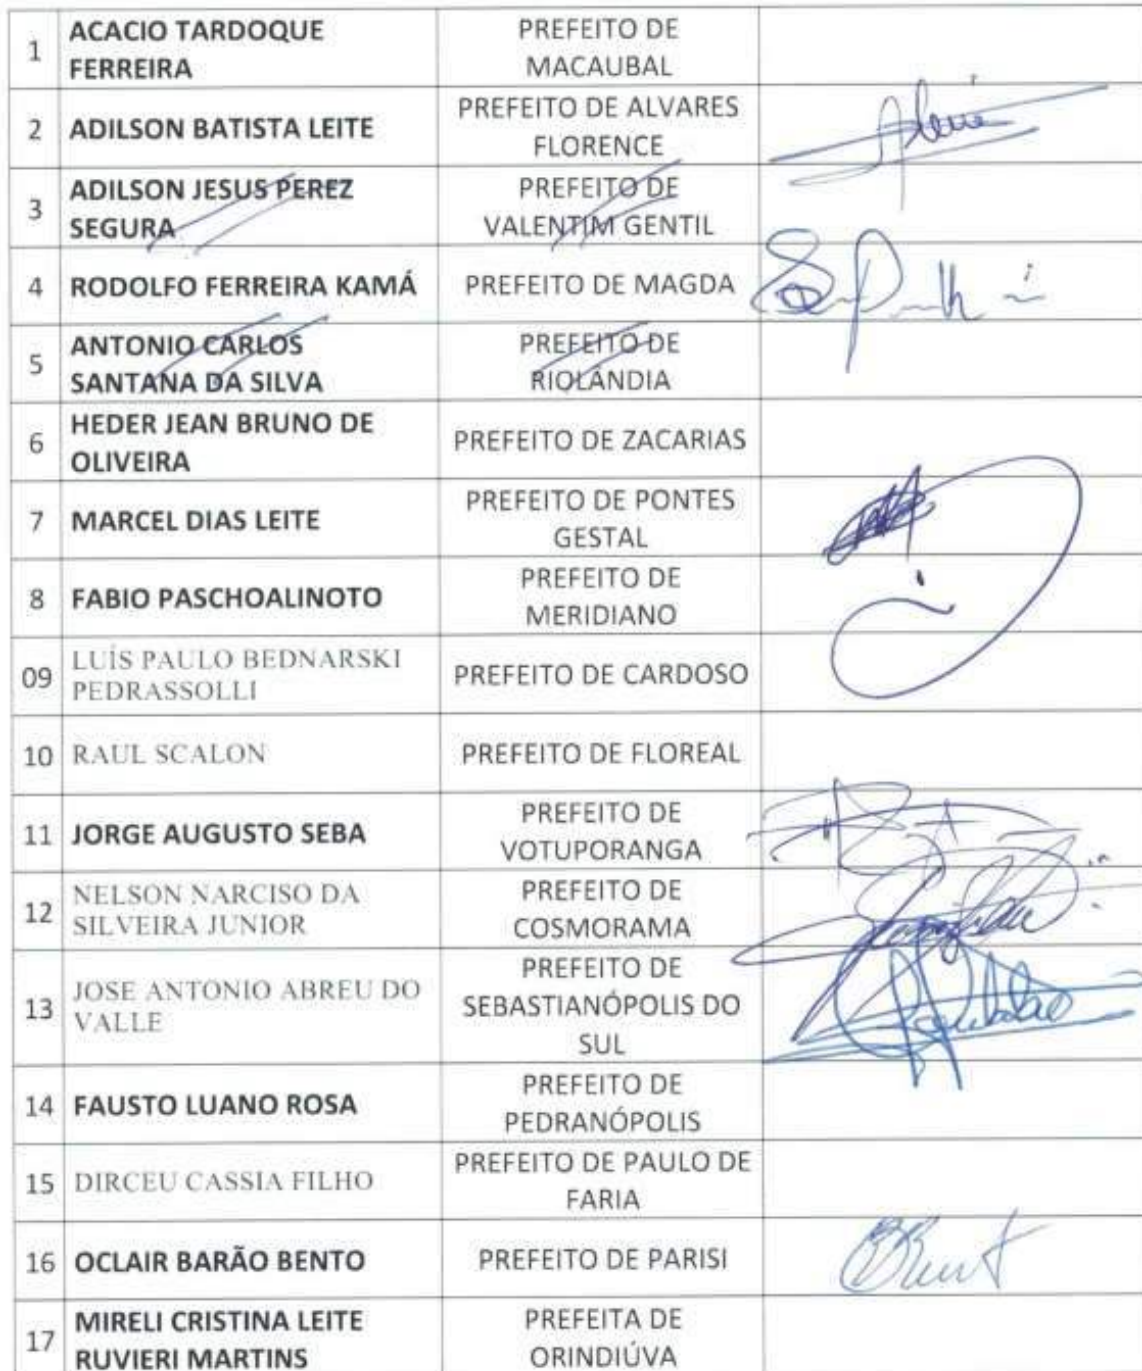 1
ACACIO TARDOQUE
FERREIRA
PREFEITO DE
MACAUBAL
2
ADILSON BATISTA LEITE
PREFEITO DE ALVARES
FLORENCE
3
ADILSON JESUS PEREZ
SEGURA
PREFEITO DE
VALENTIM GENTIL
4
RODOLFO FERREIRA KAMÁ
PREFEITO DE MAGDA
5
ANTONIO CARLOS
SANTANA DA SILVA
PREFEITO DE
RIOLANDIA
6
HEDER JEAN BRUNO DE
OLIVEIRA
PREFEITO DE ZACARIAS
7
MARCEL DIAS LEITE
PREFEITO DE PONTES
GESTAL
8
FABIO PASCHOALINOTO
PREFEITO DE
MERIDIANO
09
LUÍS PAULO BEDNARSKI
PEDRASSOLLI
PREFEITO DE CARDOSO
10
RAUL SCALON
PREFEITO DE FLOREAL
11
JORGE AUGUSTO SEBA
PREFEITO DE
VOTUPORANGA
12
NELSON NARCISO DA
SILVEIRA JUNIOR
PREFEITO DE
COSMORAMA
13
JOSE ANTONIO ABREU DO
VALLE
PREFEITO DE
SEBASTIANÓPOLIS DO
SUL
14
FAUSTO LUANO ROSA
PREFEITO DE
PEDRANÓPOLIS
15
DIRCEU CASSIA FILHO
PREFEITO DE PAULO DE
FARIA
16
OCLAIR BARÃO BENTO
PREFEITO DE PARISI
17
MIRELI CRISTINA LEITE
RUVIERI MARTINS
PREFEITA DE
ORINDIÚVA